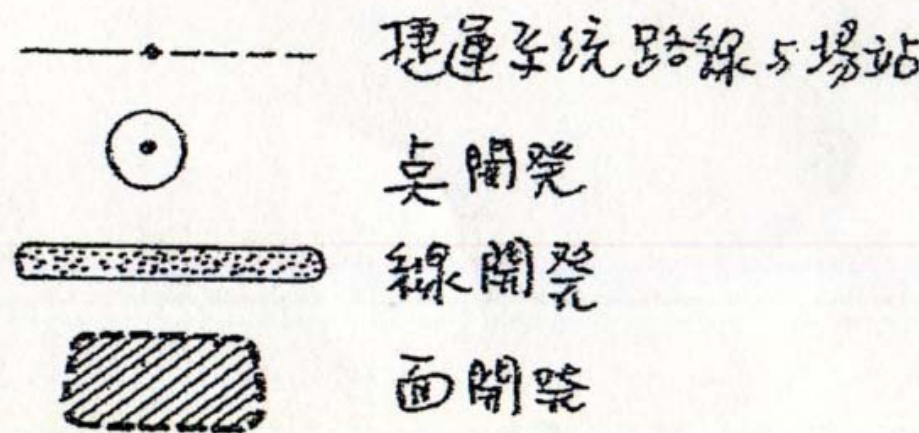 捷運系统路線与場站
点開発
線開発
面開発